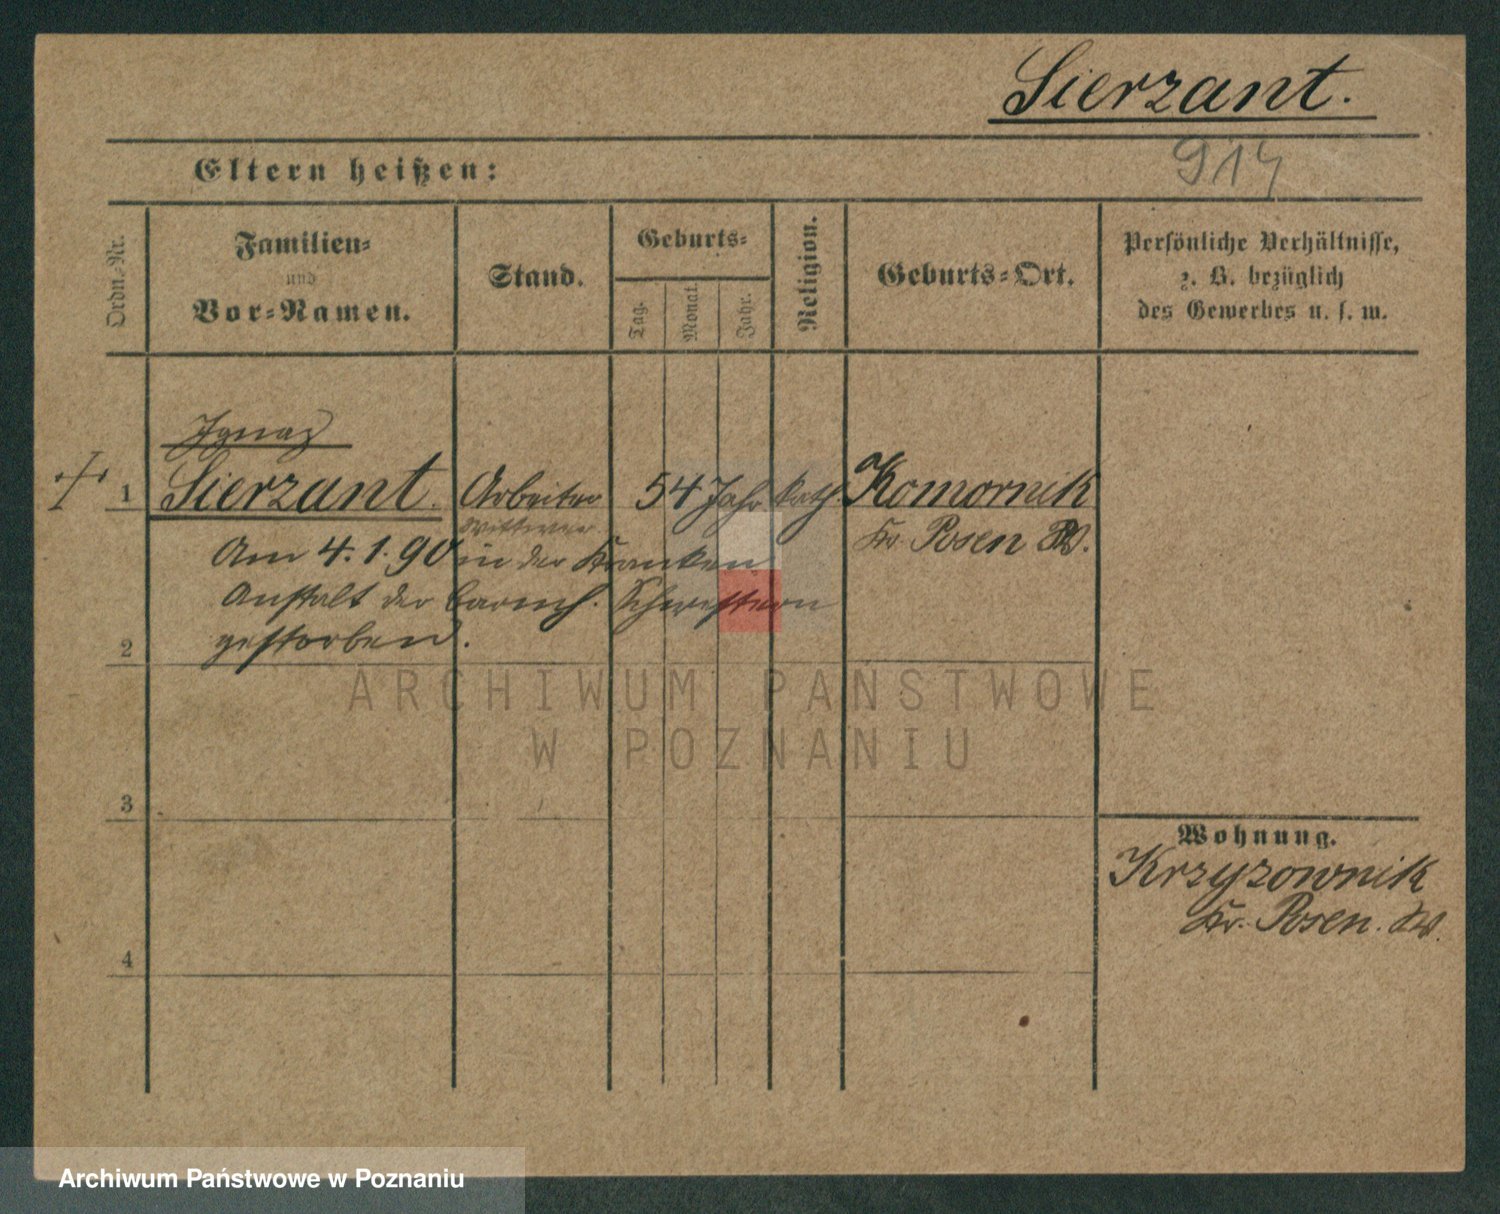 Sierzant.
914
Eltern heißen:
Ordn.-Nr.
Familien-
und
Vor-Namen.
Stand.
Geburts-
Tag.
Monat.
Jahr.
Religion.
Geburts-Ort.
Persönliche Verhältnisse,
z. B. bezüglich
des Gewerbes u. s. w.
Ignaz
1 Sierzant. Arbeiter 54 Jahr kath. Komornik
Wittwer
Kr. Posen W.
Am 4.1.90 in der Kranken
Anstalt der barmh. Schwestern
2 gestorben.
ARCHIWUM PAŃSTWOWE
W POZNANIU
3
Wohnung.
Krzyzownik
Kr. Posen.
4
Archiwum Państwowe w Poznaniu